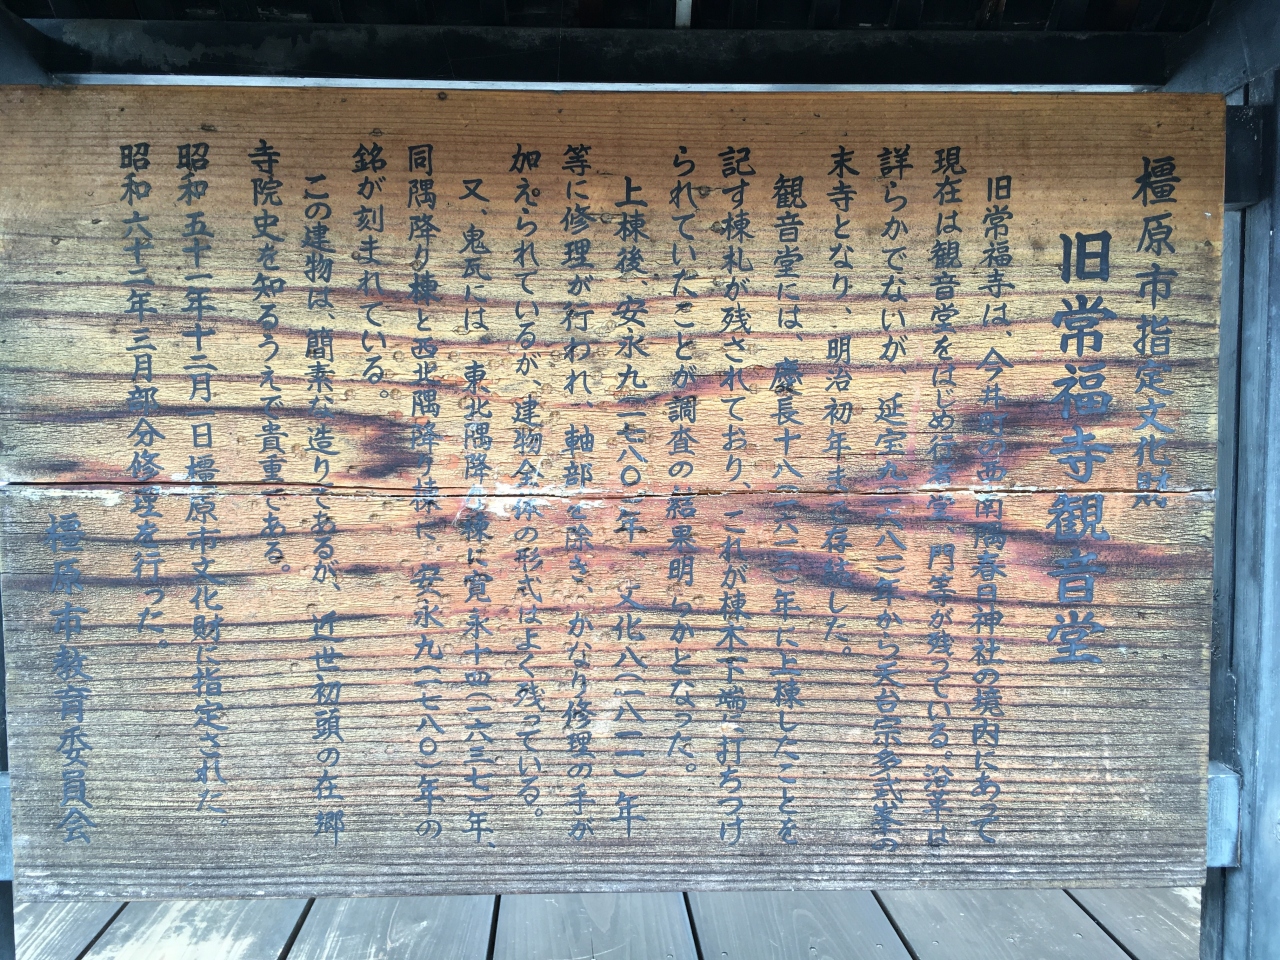 橿原市指定文化財
旧常福寺観音堂
旧常福寺は、今井町の西南隅春日神社の境内にあって
現在は観音堂をはじめ行者堂、門等が残っている。沿革は
詳らかでないが、延宝九(一六八一)年から天台宗多武峯の
末寺となり、明治初年まで存続した。
観音堂には、慶長十八(一六一三)年に上棟したことを
記す棟札が残されており、これが棟木下端に打ちつけ
られていたことが調査の結果明らかとなった。
上棟後、安永九(一七八〇)年、文化八(一八一一)年
等に修理が行われ、軸部を除き、かなり修理の手が
加えられているが、建物全体の形式はよく残っている。
又、鬼瓦には、東北隅降り棟に寛永十四(一六三七)年、
同隅降り棟と西北隅降り棟に、安永九(一七八〇)年の
銘が刻まれている。
この建物は、簡素な造りであるが、近世初頭の在郷
寺院史を知るうえで貴重である。
昭和五十一年十二月一日橿原市文化財に指定された。
昭和六十二年三月部分修理を行った。
橿原市教育委員会